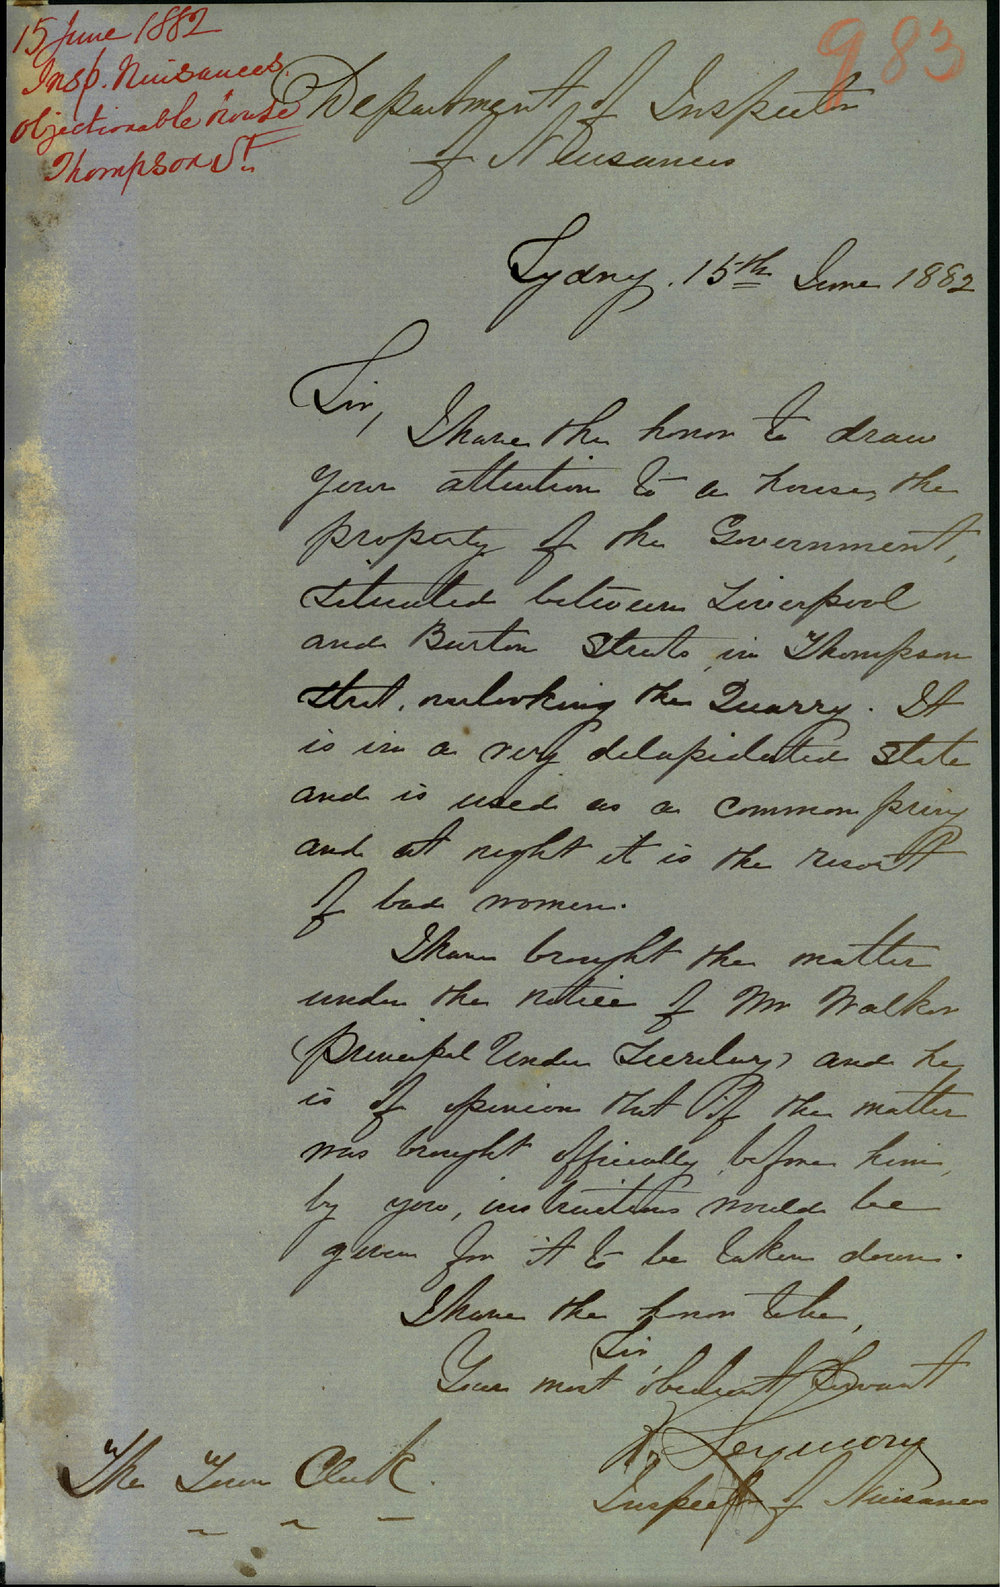 15 June 1882
Insp. Nuisances
objectionable house
Thompson St.
983
Department of Inspector
of Nuisances
Sydney, 15th June 1882
Sir,
I have the honor to draw
your attention to a house, the
property of the Government,
situated between Liverpool
and Burton Streets, in Thompson
Street, overlooking the Quarry. It
is in a very delapidated state
and is used as a common privy
and at night it is the resort
of bad women.
I have brought the matter
under the notice of Mr Walker
(Principal Under Secretary) and he
is of opinion that if the matter
was brought officially before him,
by you, instructions would be
given for it to be taken down.
I have the honor to be,
Sir,
Your most obedient Servant
R. Seymour
Inspector of Nuisances
The Town Clerk.